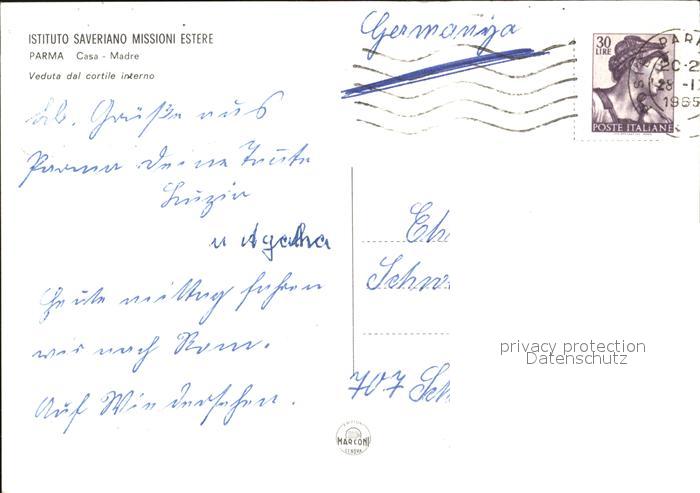 ISTITUTO SAVERIANO MISSIONI ESTERE
PARMA Casa - Madre
Veduta dal cortile interno
Germanija
30
LIRE
POSTE ITALIANE
PARM
20-2
28 -I
1965
lb. Grüße aus
Parma Deine Tante
Luzia
u Agatha
Heute mittag fahren
wir nach Rom.
Auf Wiedersehen.
Eh
Schw
707 Sch
privacy protection
Datenschutz
MARCONI
GENOVA